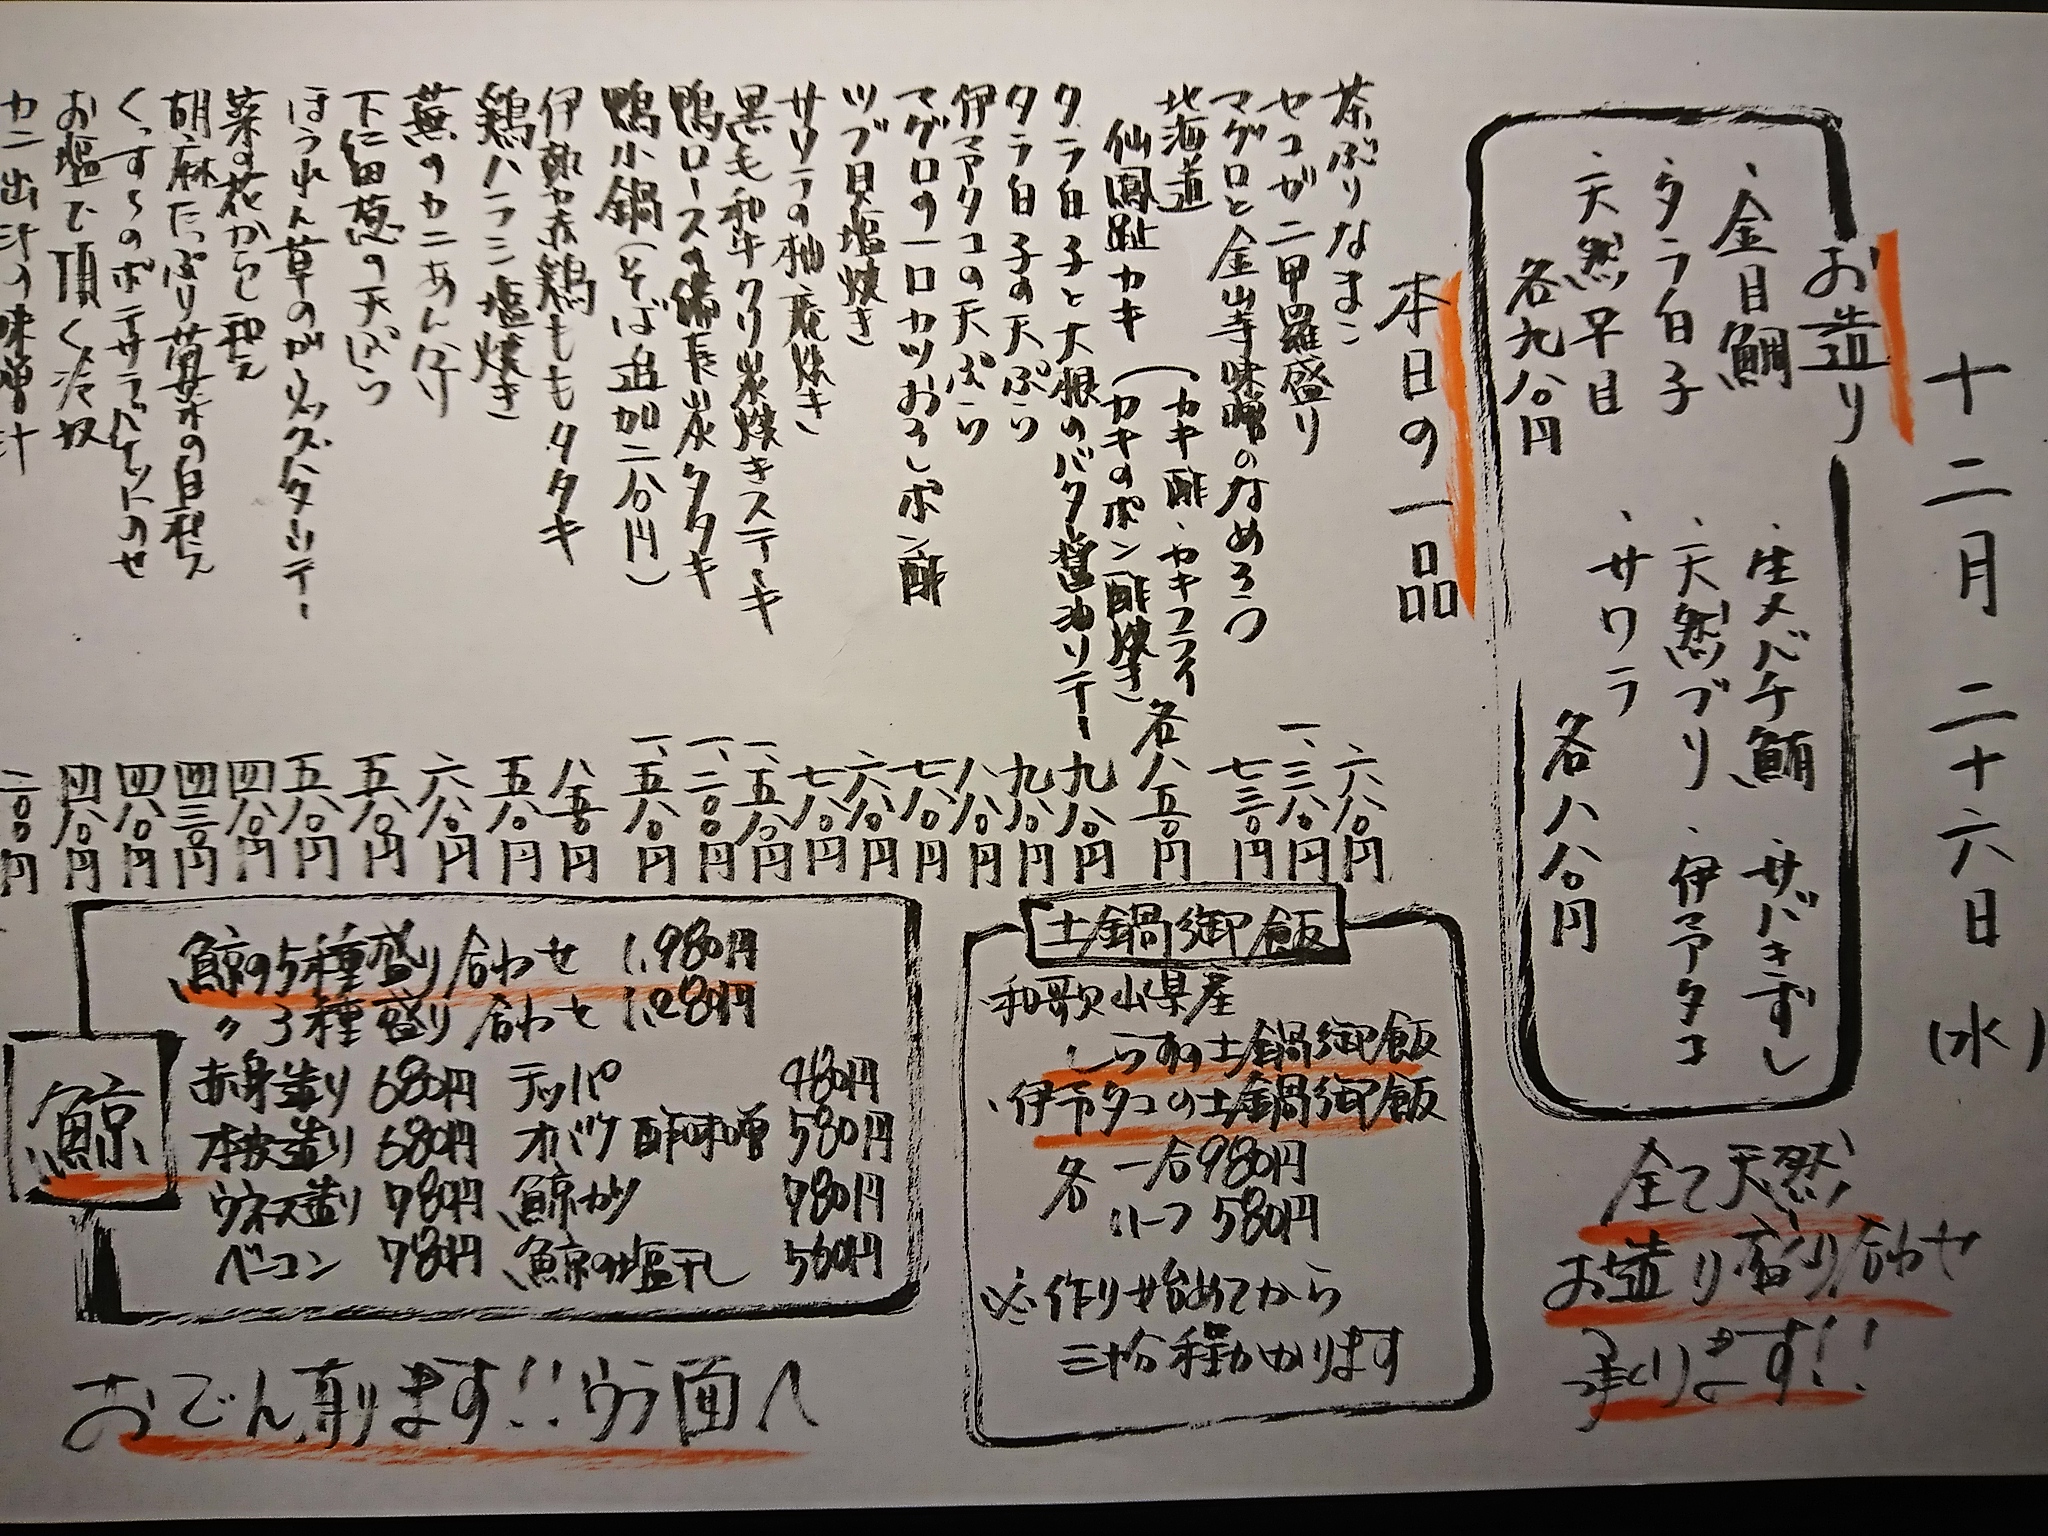 十二月二十六日(水)
お造り
・金目鯛
・タラ白子
・天然平目
各九八〇円
・生メバチ鮪
・天然ブリ
・サワラ
・サバきずし
・伊予タコ
各八八〇円
全て天然
お造り盛り合わせ
承ります!!
本日の一品
茶ぶりなまこ 六八〇円
セコガニ甲羅盛り 一、三八〇円
マグロと金山寺味噌のなめろう 七三〇円
北海道
仙鳳趾カキ(カキ酢・カキフライ
(カキのポン酢焼き) 各八五〇円
タラ白子と大根のバター醤油ソテー 九八〇円
タラ白子の天ぷら 九八〇円
伊予タコの天ぷら 八八〇円
マグロの一口カツおろしポン酢 七八〇円
ツブ貝塩焼き 六八〇円
サワラの柚庵焼き 七八〇円
黒毛和牛クリ炭焼きステーキ 一、五八〇円
鴨ロースの備長炭タタキ 一、二〇〇円
鴨小鍋(そば追加二八〇円) 一、五八〇円
伊勢赤鶏ももタタキ 八五〇円
鶏ハラミ塩焼き 五八〇円
蕪のカニあん掛け 六八〇円
下仁田葱の天ぷら 五八〇円
ほうれん草のガーリックバターソテー 五八〇円
菜の花からし和え 四八〇円
胡麻たっぷり春菊の白和え 四三〇円
くっすらのポテサラバケットのせ 四八〇円
お塩で頂く冷奴 四八〇円
カニ出汁の味噌汁 二〇〇円
土鍋御飯
和歌山県産
しらすの土鍋御飯
・伊予タコの土鍋御飯
各 一合980円
ハーフ580円
※作り始めてから
三十分程かかります
鯨
鯨の5種盛り合わせ 1,980円
〃3種盛り合わせ 1,280円
赤身造り 680円 テッパ 480円
本皮造り 680円 オバケ酢味噌 580円
ウネス造り 780円 鯨カツ 780円
ベーコン 780円 鯨の塩干し 560円
おでん有ります!!ウラ面へ